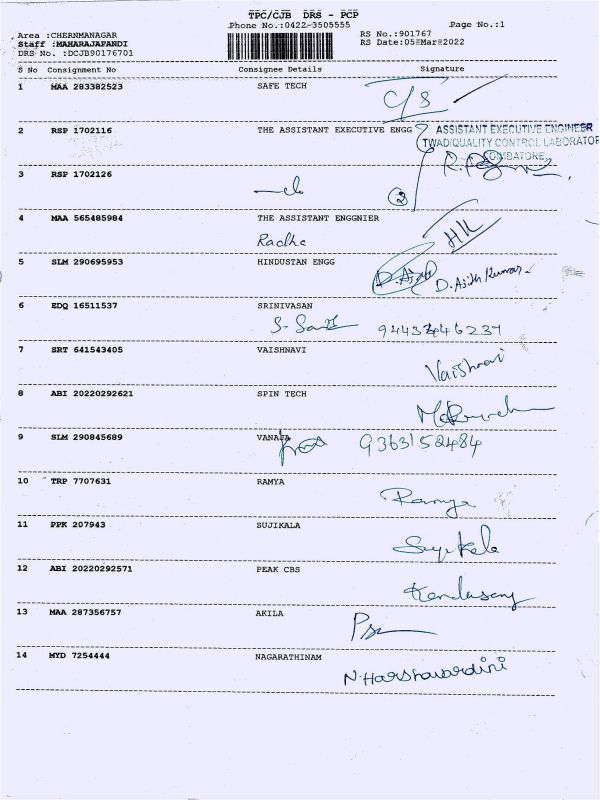 TPC/CJB DRS - PCP
Phone No.:0422-3505555
Page No.:1
Area :CHERNMANAGAR
Staff :MAHARAJAPANDI
DRS No. :DCJB90176701
RS No.:901767
RS Date:05-Mar-2022
S No Consignment No Consignee Details Signature
1 MAA 283382523 SAFE TECH
C/S
2 RSP 1702116 THE ASSISTANT EXECUTIVE ENGG
ASSISTANT EXECUTIVE ENGINEER
TWAD/QUALITY CONTROL LABORATOR
COIMBATORE
3 RSP 1702126
do
2
4 MAA 565485984 THE ASSISTANT ENGGNIER
Radhe
5 SLM 290695953 HINDUSTAN ENGG
D. Ajith Kumar
6 EDQ 16511537 SRINIVASAN
7 SRT 641543405 VAISHNAVI
Vaishnavi
8 ABI 20220292621 SPIN TECH
9 SLM 290845689 VANAJA
9363152484
10 TRP 7707631 RAMYA
Ramya
11 PPK 207943 SUJIKALA
Sujikala
12 ABI 20220292571 PEAK CBS
Kandasamy
13 MAA 287356757 AKILA
14 MYD 7254444 NAGARATHINAM
N.Harshavardini